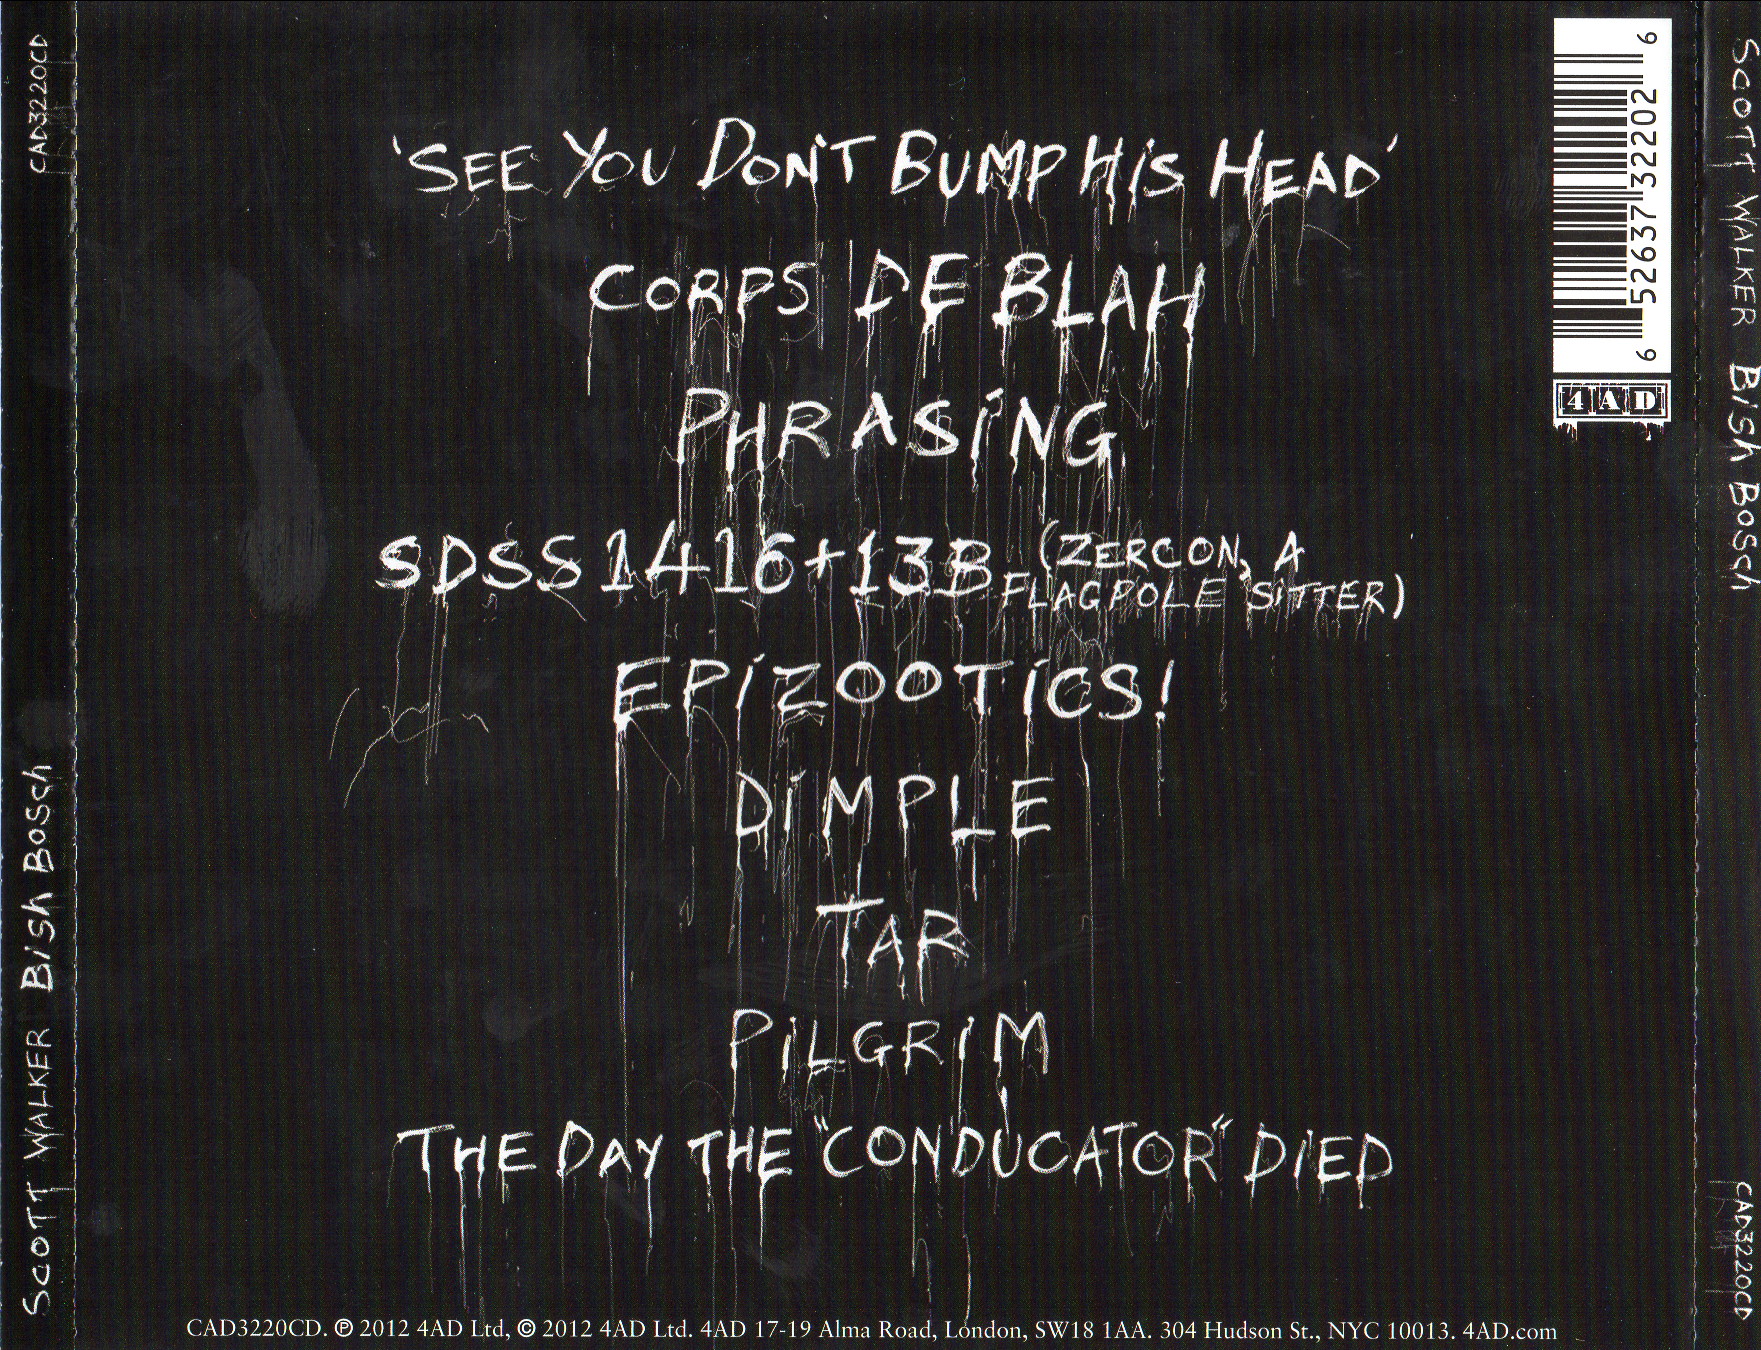 'SEE YOU DON'T BUMP HIS HEAD'
CORPS DE BLAH
PHRASING
SDSS 1416+13B (ZERCON, A
FLAGPOLE SITTER)
EPIZOOTICS!
DIMPLE
TAR
PILGRIM
THE DAY THE "CONDUCATOR" DIED
CAD3220CD. ℗ 2012 4AD Ltd, © 2012 4AD Ltd. 4AD 17-19 Alma Road, London, SW18 1AA. 304 Hudson St., NYC 10013. 4AD.com
SCOTT WALKER BISH BOSCH
CAD3220CD
6 52637 32202 6
4AD
SCOTT WALKER BISH BOSCH
CAD3220CD